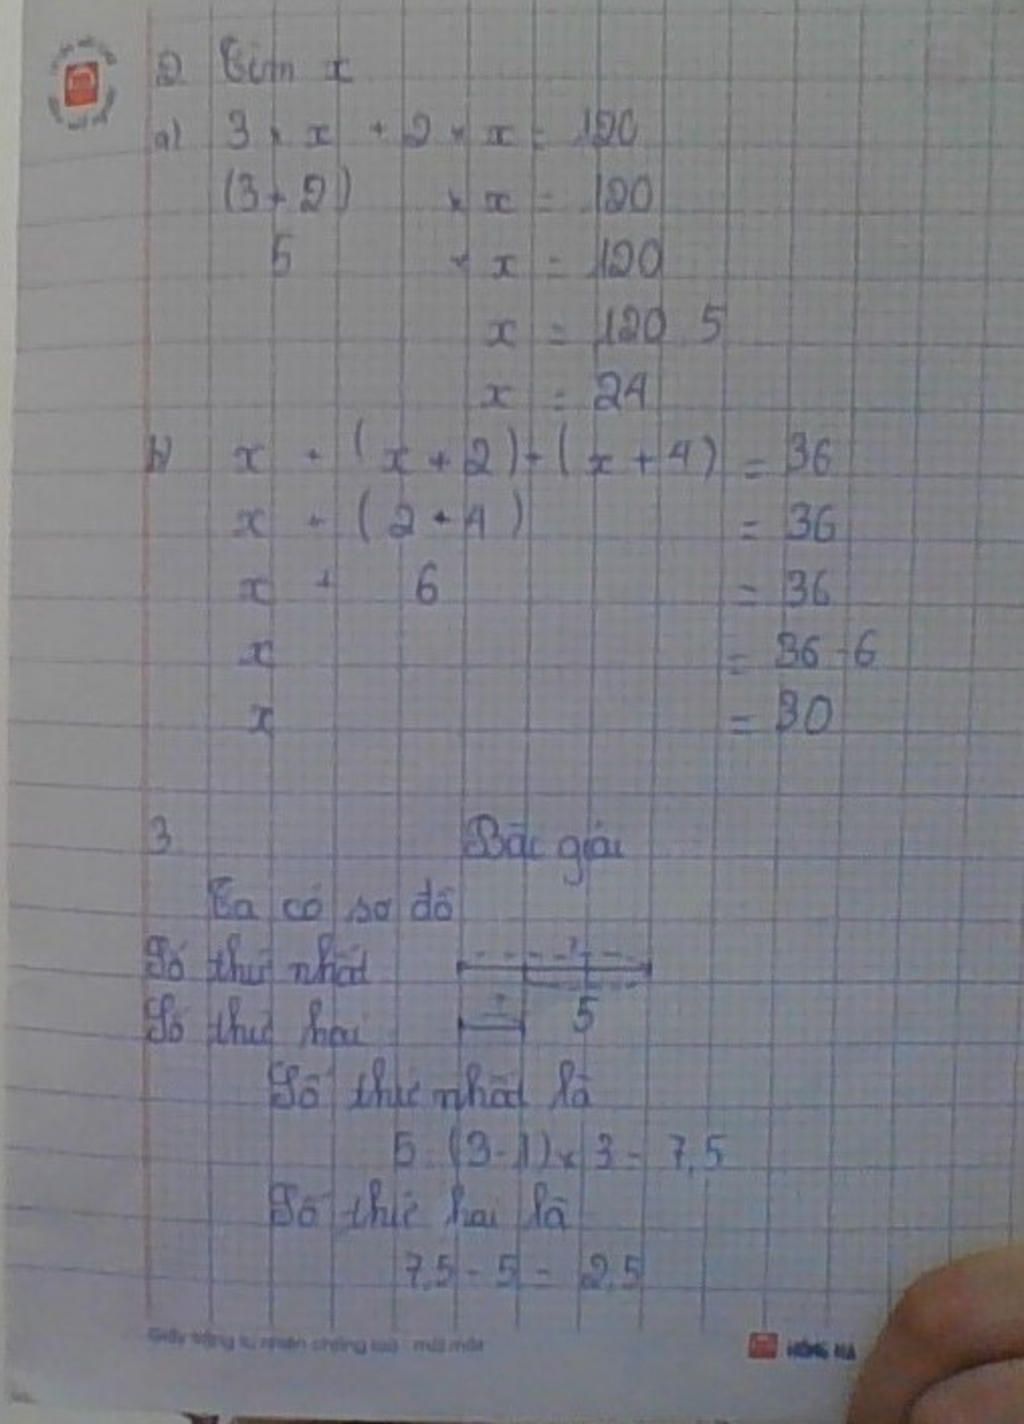 2 Tìm x
a) 3 × x + 2 × x = 120
(3 + 2) × x = 120
5 × x = 120
x = 120 5
x = 24
b) x + (x + 2) + (x + 4) = 36
x + (2 + 4) = 36
x + 6 = 36
x = 36 - 6
x = 30
3 Bài giải
Ta có sơ đồ
Số thứ nhất ?
Số thứ hai ? 5
Số thứ nhất là
5 : (3 - 1) × 3 = 7,5
Số thứ hai là
7,5 - 5 = 2,5
Giấy trắng tự nhiên chống loá - mỏi mắt HỒNG HÀ